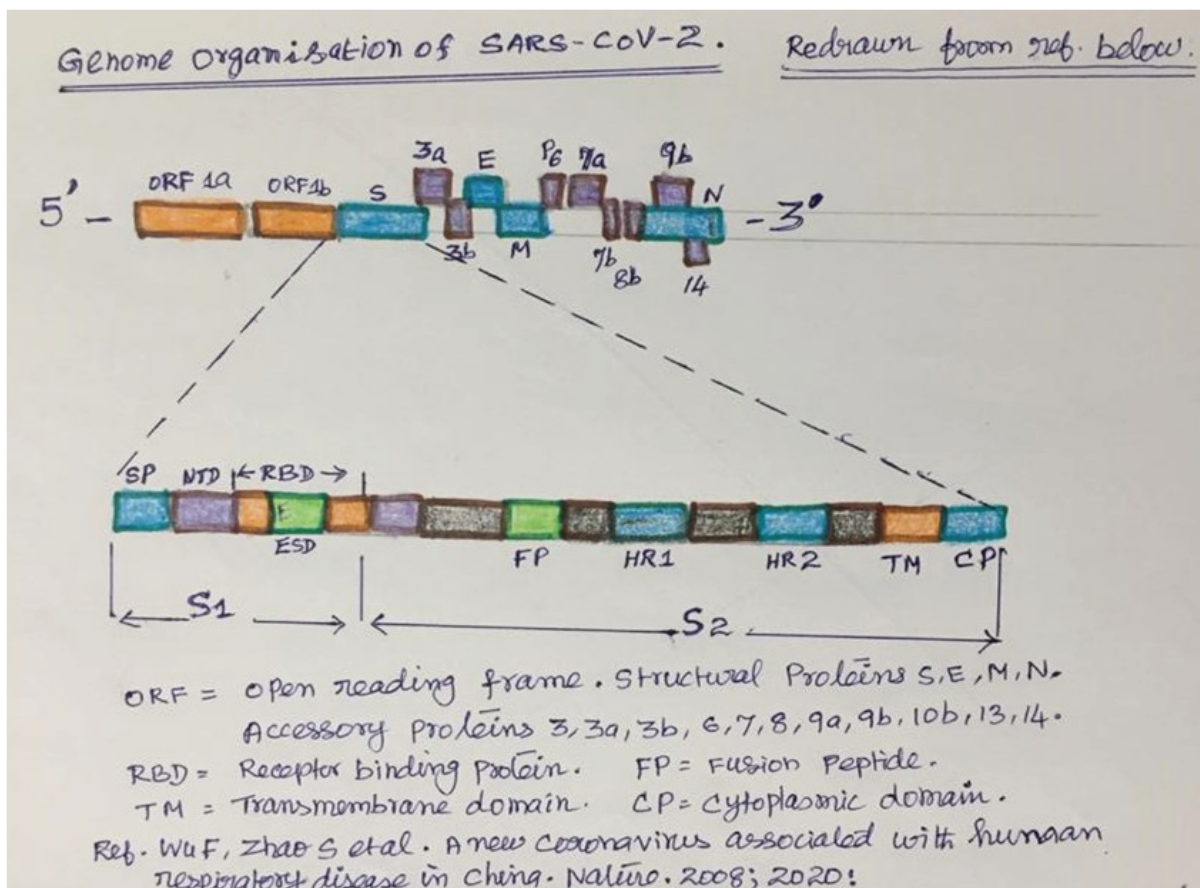 Genome Organisation of SARS-COV-2. Redrawn from ref. below:
3a E P6 7a 9b
ORF 1a ORF1b S N
5' - - 3'
3b M 7b 8b 14
SP NTD RBD
E
ESD FP HR1 HR2 TM CP
S1 S2
ORF = Open reading frame. Structural Proteins S,E,M,N.
Accessory proteins 3,3a,3b,6,7,8,9a,9b,10b,13,14.
RBD = Receptor binding protein. FP = Fusion Peptide.
TM = Transmembrane domain. CP= Cytoplasmic domain.
Ref. Wu F, Zhao S etal. A new coronavirus associated with human
respiratory disease in China. Nature. 2008; 2020: